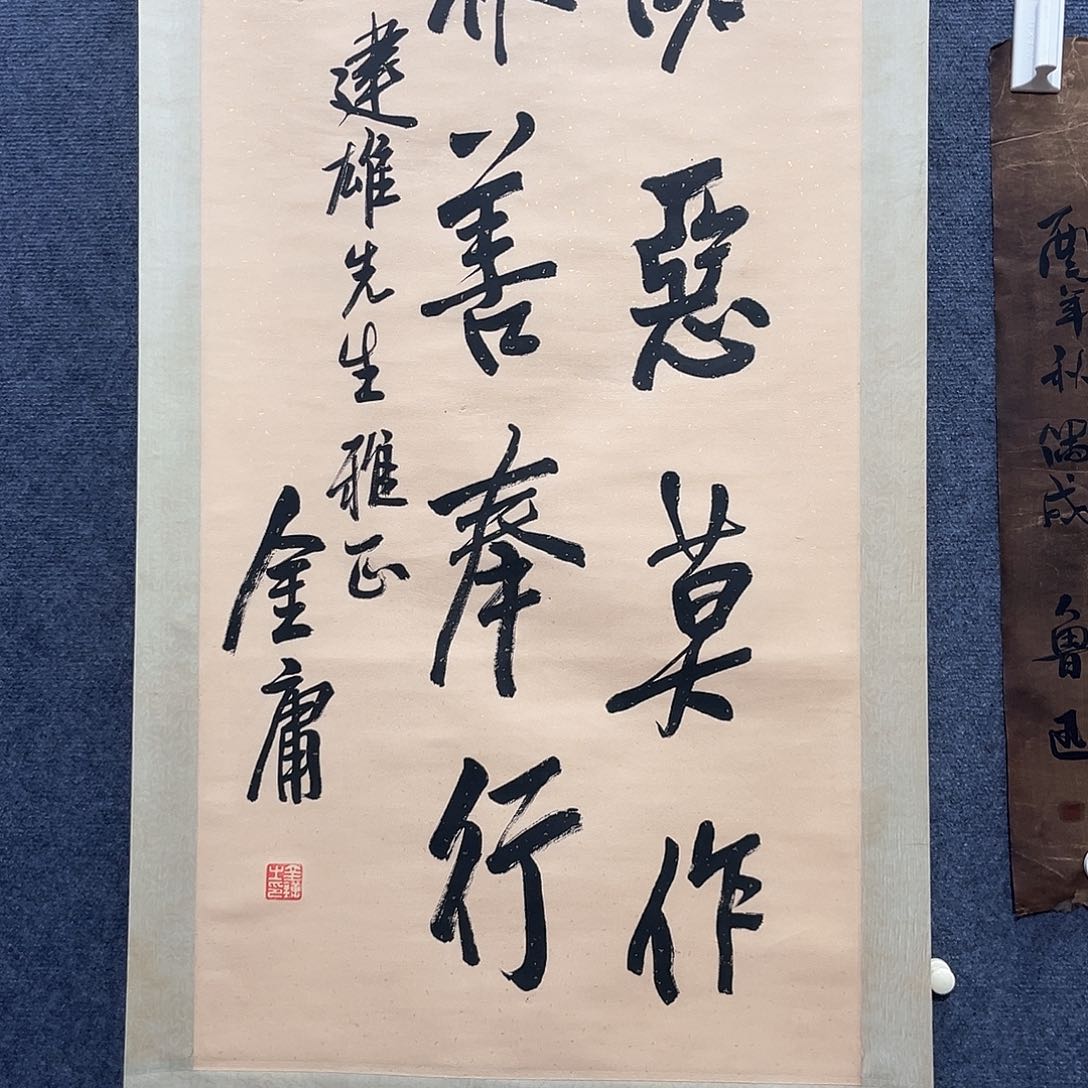 惡莫作
善奉行
建雄先生雅正
金庸
酉年秋偶成
魯迅